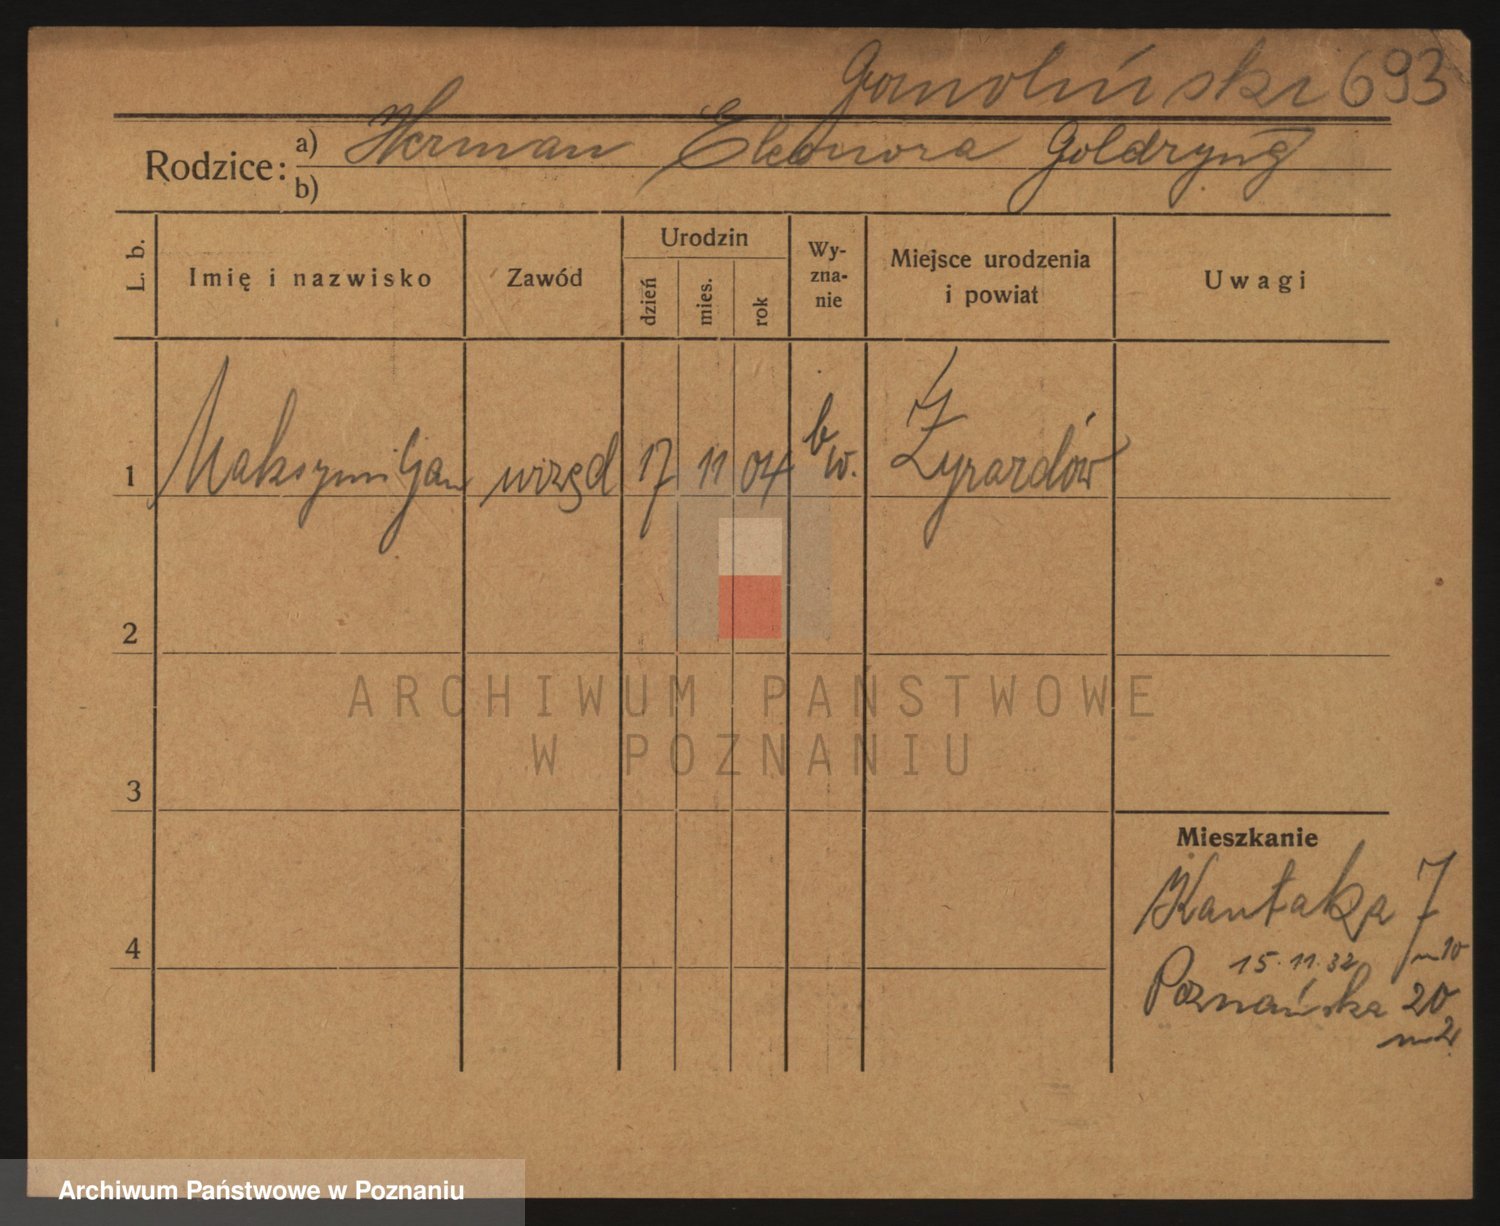 Gomoliński 693
Rodzice: a) Herman Eleonora Goldryng
b)
L. b. Imię i nazwisko Zawód Urodzin dzień mies. rok Wy-zna-nie Miejsce urodzenia i powiat Uwagi
1 Maksymiljan urzęd 17 11 04 b/w. Żyrardów
2
3
4
Mieszkanie
Kantaka 7
m 10
15.11.32
Poznańska 20
m 2
ARCHIWUM PAŃSTWOWE
W POZNANIU
Archiwum Państwowe w Poznaniu